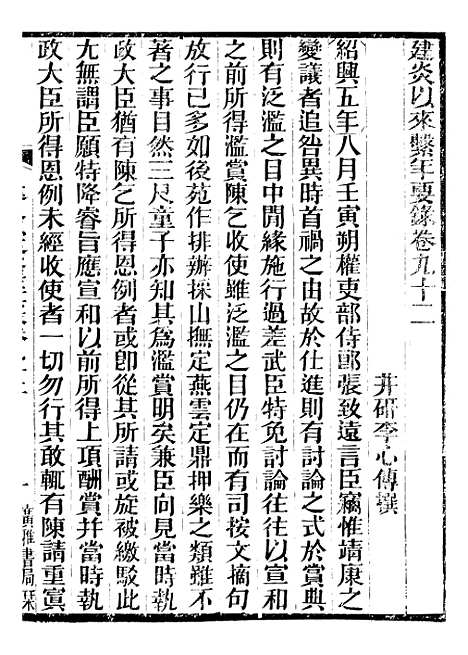 建炎以來繫年要錄卷九十二
井研李心傳撰
紹興五年八月壬寅朔權吏部侍郎張致遠言臣竊惟靖康之
變議者追咎異時首禍之由故於仕進則有討論之式於賞典
則有泛濫之目中閒緣施行過差武臣特免討論往往以宣和
之前所得濫賞陳乞收使雖泛濫之目仍在而有司按文摘句
放行已多如後苑作排辦採山撫定燕雲定鼎押樂之類雖不
著之事目然三尺童子亦知其爲濫賞明矣兼臣向見當時執
政大臣猶有陳乞所得恩例者或卽從其所請或旋被繳駁此
尤無謂臣願特降睿旨應宣和以前所得上項酬賞幷當時執
政大臣所得恩例未經收使者一切勿行其敢輒有陳請重寘
一
廣雅書局栞